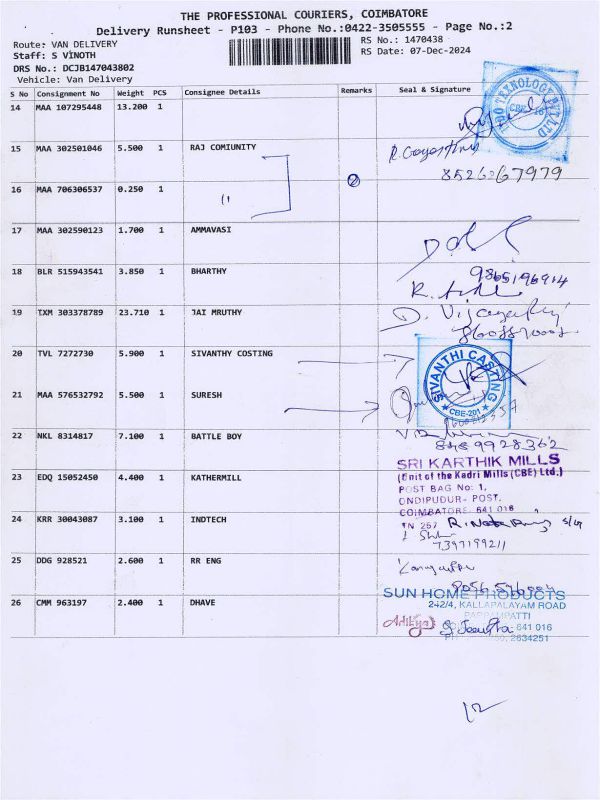 THE PROFESSIONAL COURIERS, COIMBATORE
Delivery Runsheet - P103 - Phone No.:0422-3505555 - Page No.:2
Route: VAN DELIVERY
RS No.: 1470438
Staff: S VINOTH
RS Date: 07-Dec-2024
DRS No.: DCJB147043802
Vehicle: Van Delivery
S No Consignment No Weight PCS Consignee Details Remarks Seal & Signature
14 MAA 107295448 13.200 1
15 MAA 302501046 5.500 1 RAJ COMIUNITY
8526267979
16 MAA 706306537 0.250 1
17 MAA 302590123 1.700 1 AMMAVASI
18 BLR 515943541 3.850 1 BHARTHY
9865196914
19 TXM 303378789 23.710 1 JAI MRUTHY
20 TVL 7272730 5.900 1 SIVANTHY COSTING
SIVANTHI CASTING
CBE-201
21 MAA 576532792 5.500 1 SURESH
22 NKL 8314817 7.100 1 BATTLE BOY
8489928362
23 EDQ 15052450 4.400 1 KATHERMILL
SRI KARTHIK MILLS
(Unit of the Kadri Mills (CBE) Ltd.)
POST BAG No: 1,
ONDIPUDUR- POST,
COIMBATORE 641 016
24 KRR 30043087 3.100 1 INDTECH
TN 257
7397199211
25 DDG 928521 2.600 1 RR ENG
26 CMM 963197 2.400 1 DHAVE
SUN HOME PRODUCTS
242/4, KALLAPALAYAM ROAD
PAPPAMPATTI
641 016
2634251